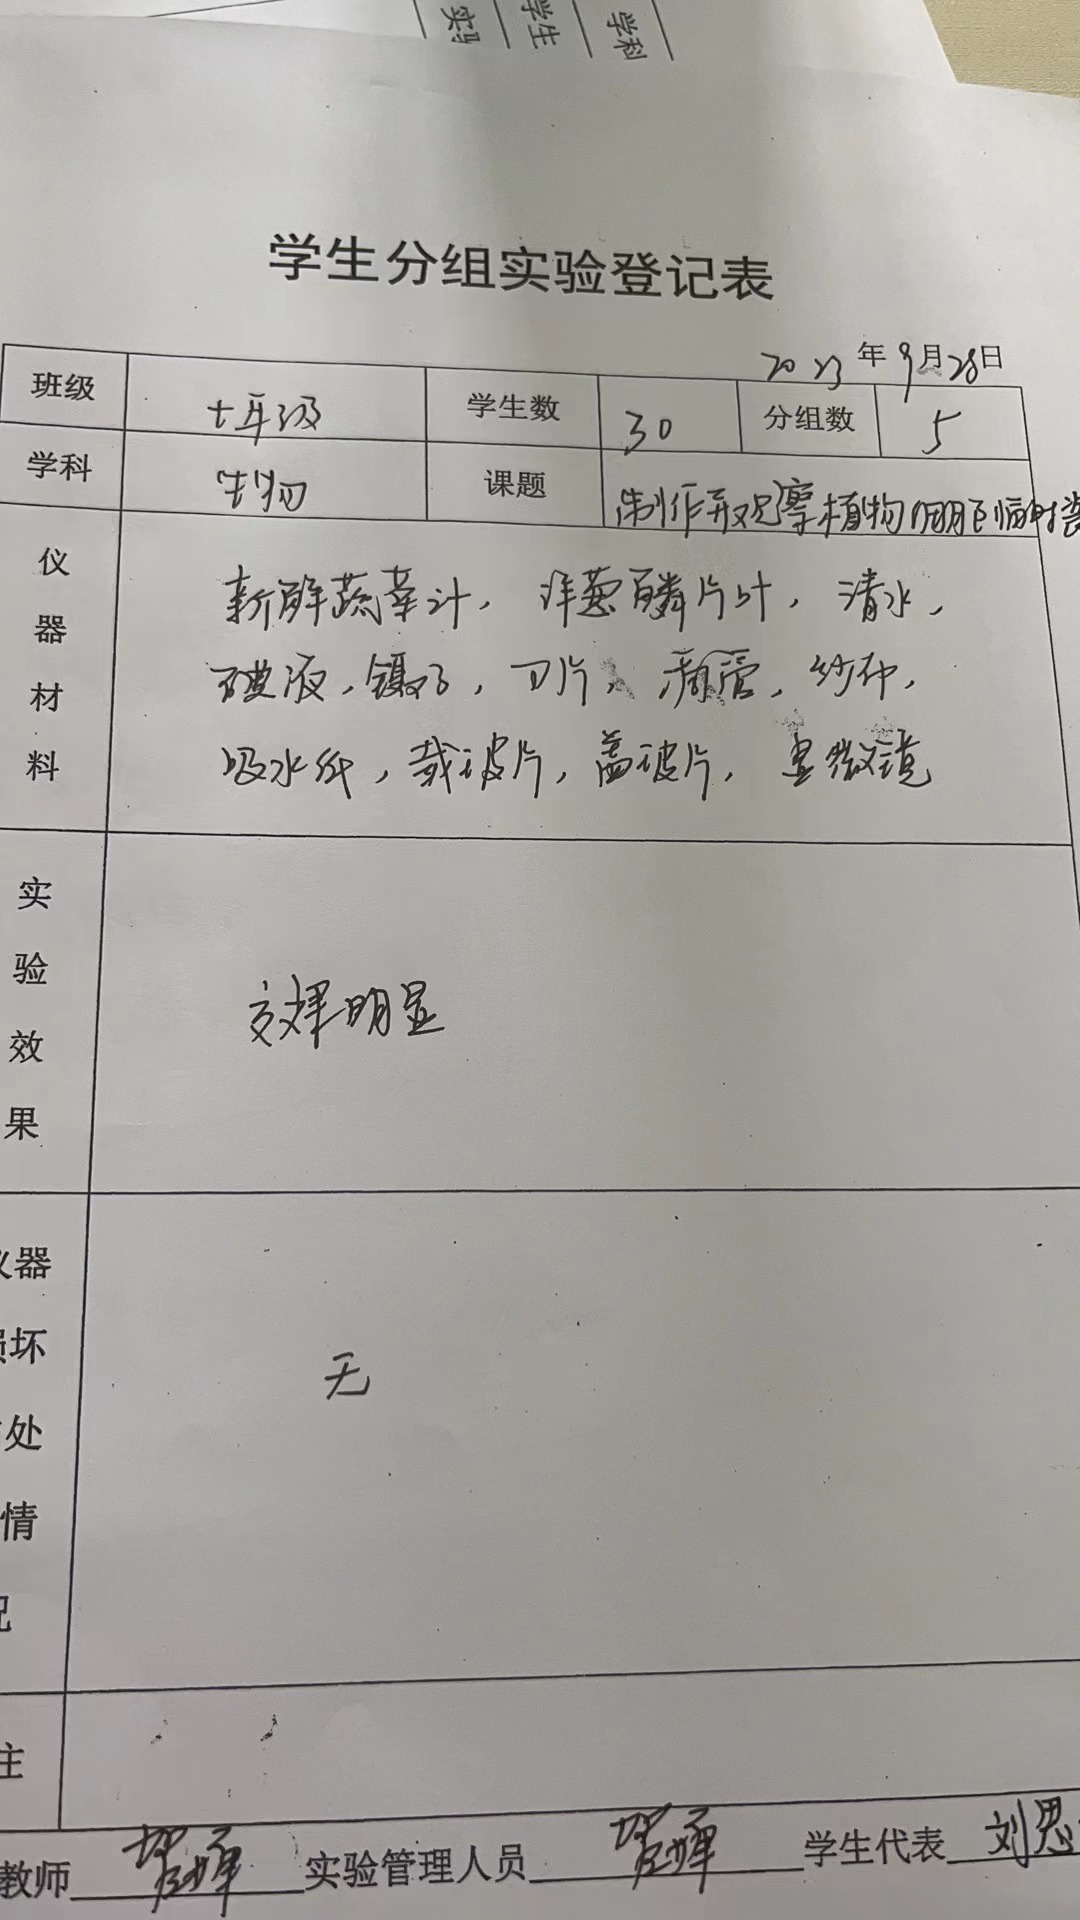 学科
学生
实
学生分组实验登记表
2023年9月28日
班级 七年级 学生数 30 分组数 5
学科 生物 课题 制作并观察植物细胞临时装
仪器材料 新鲜蔬菜汁，洋葱鳞片叶，清水，
碘液，镊子，刀片，滴管，纱布，
吸水纸，载玻片，盖玻片，显微镜
实验效果 效果明显
仪器损坏处情况 无
注
教师 实验管理人员 学生代表 刘思